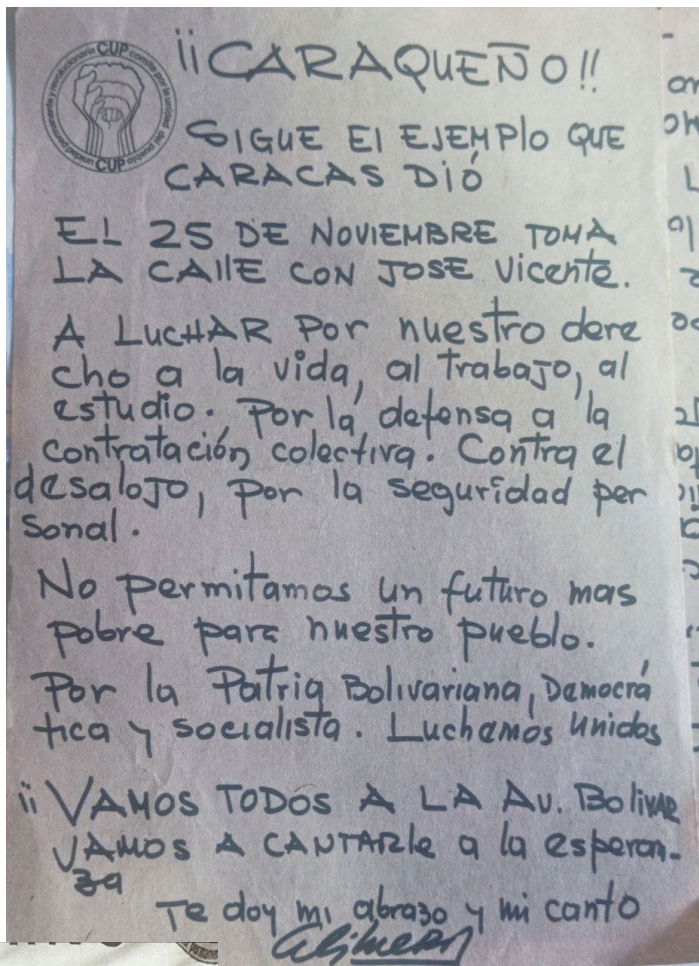 CUP comite por la unidad del pueblo
CUP unidad permanente y revolucionaria
¡¡CARAQUEÑO!!
SIGUE El EJEMPlo QUE
CARACAS DIÓ
EL 25 DE NOVIEMBRE TOMA
LA CAllE CON JOSE Vicente.
A LUCHAR Por nuestro dere
cho a la vida, al trabajo, al
estudio. Por la defensa a la
contratación colectiva. Contra el
desalojo, por la seguridad per
sonal.
No permitamos un futuro mas
pobre para nuestro pueblo.
Por la Patria Bolivariana, Democrá
tica y socialista. Luchemos Unidos
¡¡ VAMOS TODOS A LA AV. BolivAR
VAMOS A CANTARle a la esperan-
za
Te doy mi abrazo y mi canto